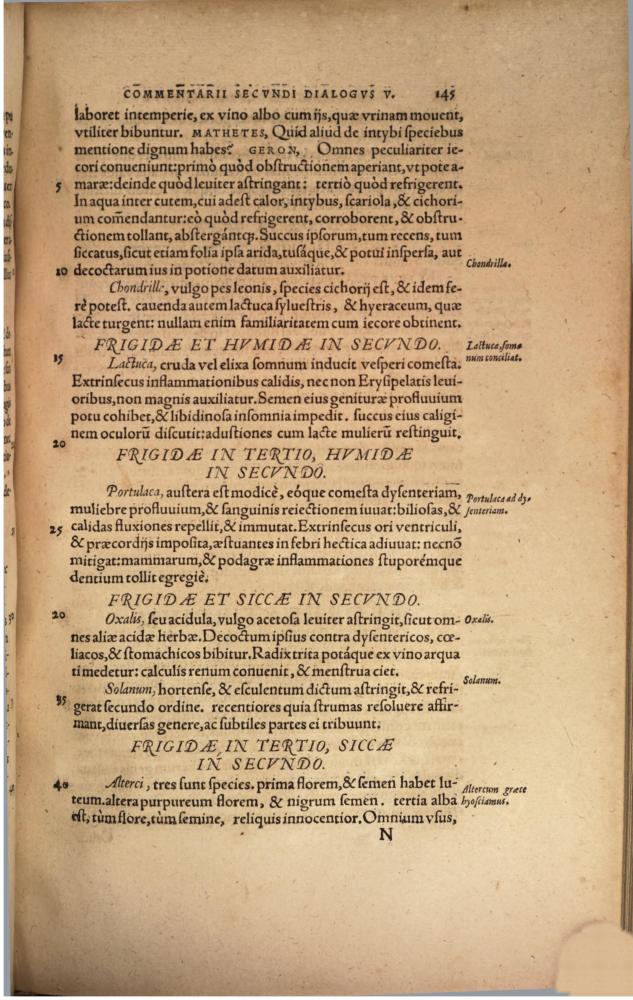 COMMENTARII SECVNDI DIALOGVS V. 145
laboret intemperie, ex vino albo cum ijs, quæ vrinam mouent,
vtiliter bibuntur. MATHETES, Quid aliud de intybi speciebus
mentione dignum habes? GERON, Omnes peculiariter ie-
cori conueniunt: primò quòd obstructionem aperiant, vt pote a-
5 maræ: deinde quòd leuiter astringant: tertiò quòd refrigerent.
In aqua inter cutem, cui adest calor, intybus, scariola, & cichori-
um com̃endantur: eò quòd refrigerent, corroborent, & obstru-
ctionem tollant, abstergántq;. Succus ipsorum, tum recens, tum
siccatus, sicut etiam folia ipsa arida, tusáque, & potui inspersa, aut
10 decoctarum ius in potione datum auxiliatur.
Chondrilla.
Chondrille, vulgo pes leonis, species cichorij est, & idem fe-
rè potest. cauenda autem lactuca syluestris, & hyeraceum, quæ
lacte turgent: nullam enim familiaritatem cum iecore obtinent.
FRIGIDÆ ET HVMIDÆ IN SECVNDO.
Lactuca, som̃
num conciliat.
15 Lactuca, cruda vel elixa somnum inducit vesperi comesta.
Extrinsecus inflammationibus calidis, nec non Erysipelatis leui-
oribus, non magnis auxiliatur. Semen eius genituræ profluuium
potu cohibet, & libidinosa insomnia impedit. succus eius caligi-
nem oculorũ discutit: adustiones cum lacte mulierũ restinguit.
20
FRIGIDÆ IN TERTIO, HVMIDÆ
IN SECVNDO.
Portulaca, austera est modicè, eóque comesta dysenteriam,
Portulaca ad dy-
senteriam.
muliebre profluuium, & sanguinis reiectionem iuuat: biliosas, &
25 calidas fluxiones repellit, & immutat. Extrinsecus ori ventriculi,
& præcordijs imposita, æstuantes in febri hectica adiuuat: necnõ
mitigat: mammarum, & podagræ inflammationes stuporémque
dentium tollit egregiè.
FRIGIDÆ ET SICCÆ IN SECVNDO.
20 Oxalis, seu acidula, vulgo acetosa leuiter astringit, sicut om-
Oxalis.
nes aliæ acidæ herbæ. Decoctum ipsius contra dysentericos, cœ-
liacos, & stomachicos bibitur. Radix trita potáque ex vino arqua
ti medetur: calculis renum conuenit, & menstrua ciet.
Solanum.
Solanum, hortense, & esculentum dictum astringit, & refri-
35 gerat secundo ordine. recentiores quia strumas resoluere affir-
mant, diuersas genere, ac subtiles partes ei tribuunt.
FRIGIDÆ IN TERTIO, SICCÆ
IN SECVNDO.
40 Alterci, tres sunt species. prima florem, & semen habet lu-
Altercum græce
hyosciamus.
teum. altera purpureum florem, & nigrum semen. tertia alba
est, tùm flore, tùm semine, reliquis innocentior. Omnium vsus,
N